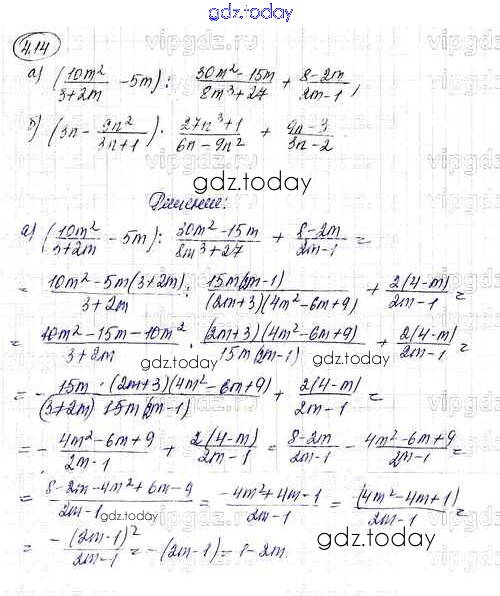 gdz.today
4.14
а) (10m²/(3+2m) - 5m) : (30m²-15m)/(8m³+27) + (8-2m)/(2m-1),
б) (3n - 9n²/(3n+1)) · (27n³+1)/(6n-9n²) + (9n-3)/(3n-2)
gdz.today
Решение:
а) (10m²/(3+2m) - 5m) : (30m²-15m)/(8m³+27) + (8-2m)/(2m-1) =
= (10m²-5m(3+2m))/(3+2m) : 15m(2m-1)/((2m+3)(4m²-6m+9)) + 2(4-m)/(2m-1) =
= (10m²-15m-10m²)/(3+2m) · (2m+3)(4m²-6m+9)/(15m(2m-1)) + 2(4-m)/(2m-1) =
gdz.today
= - 15m·(2m+3)(4m²-6m+9)/((3+2m) 15m(2m-1)) + 2(4-m)/(2m-1) =
= - (4m²-6m+9)/(2m-1) + 2(4-m)/(2m-1) = (8-2m)/(2m-1) - (4m²-6m+9)/(2m-1) =
= (8-2m-4m²+6m-9)/(2m-1) = (-4m²+4m-1)/(2m-1) = (4m²-4m+1)/(2m-1) =
gdz.today
= -(2m-1)²/(2m-1) = -(2m-1) = 1-2m.
gdz.today